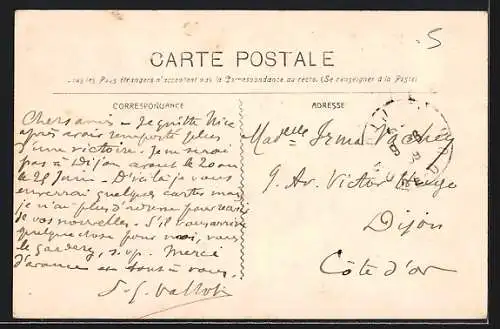 5
CARTE POSTALE
Tous les Pays étrangers n'acceptent pas la Correspondance au recto. (Se renseigner à la Poste)
CORRESPONDANCE
Chers amis - Je quitte Nice
après avoir remporté plus
d'une victoire. Je ne serai
pas à Dijon avant le 20 ou
le 25 Juin. D'ici là je vous
enverrai quelques cartes mais
je n'ai plus d'adresse pour recevoir
de vos nouvelles. S'il vous arrive
quelque chose pour moi, vous
le garderez, s.v.p. Merci
d'avance et tout à vous.
ADRESSE
Mademelle Irma
9. Av. Victor Hugo
Dijon
Côte d'or